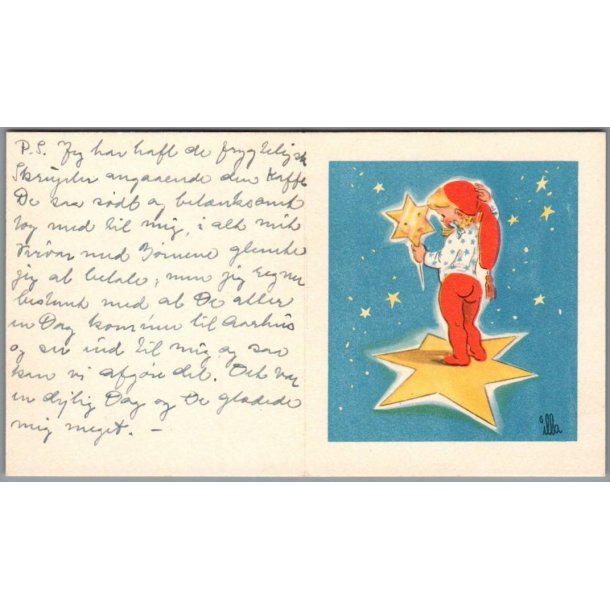 P.S. Jeg har haft de frygteligste
Skrupler angaaende den Kaffe
De saa sødt og betænksomt
tog med til mig, i alt mit
Virvar med Børnene glemte
jeg at betale, men jeg regner
bestemt med at De aller
en Dag kommer til Aarhus
og ser ind til mig og saa
kan vi afgøre det. Det var
en dejlig Dag og De glædede
mig meget. —
illa